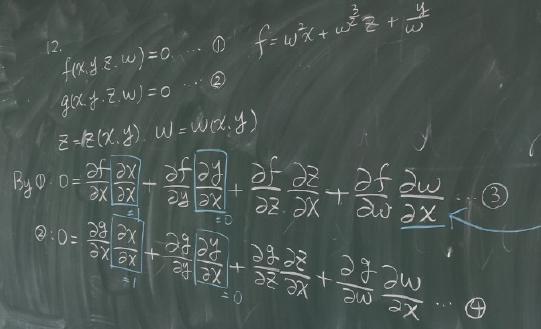 12.
f(x,y,z,w)=0. ... ① f=w²x+w^{3/2}z+y/w
g(x,y,z,w)=0 ... ②
z=z(x,y). w=w(x,y)
By①. 0=∂f/∂x ∂x/∂x + ∂f/∂y ∂y/∂x + ∂f/∂z ∂z/∂x + ∂f/∂w ∂w/∂x ... ③
=1 =0
②:0=∂g/∂x ∂x/∂x + ∂g/∂y ∂y/∂x + ∂g/∂z ∂z/∂x + ∂g/∂w ∂w/∂x ... ④
=1 =0